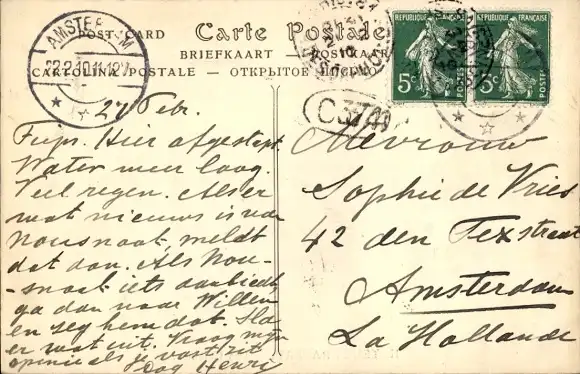 Carte Postale
POST CARD
BRIEFKAART — POSTKAART
CARTOLINA POSTALE — ОТКРЫТОЕ ПИСЬМО
AMSTERDAM
22.2.10.11-12V
REPUBLIQUE FRANÇAISE
5c POSTES
REPUBLIQUE FRANÇAISE
5c POSTES
21 Febr.
Fijn. Hier afgestapt
Water meer laag.
Veel regen. Als er
wat nieuws is van
Nousnaat, meldt
dat dan. Als Nou-
snaat iets aanbiedt
ga dan naar Willem
en zeg hem dat. Sla
er wat uit. Vraag mijn
opinie als je vast zit
Dag Henri
Mevrouw
Sophie de Vries
42 den Texstraat
Amsterdam
La Hollande